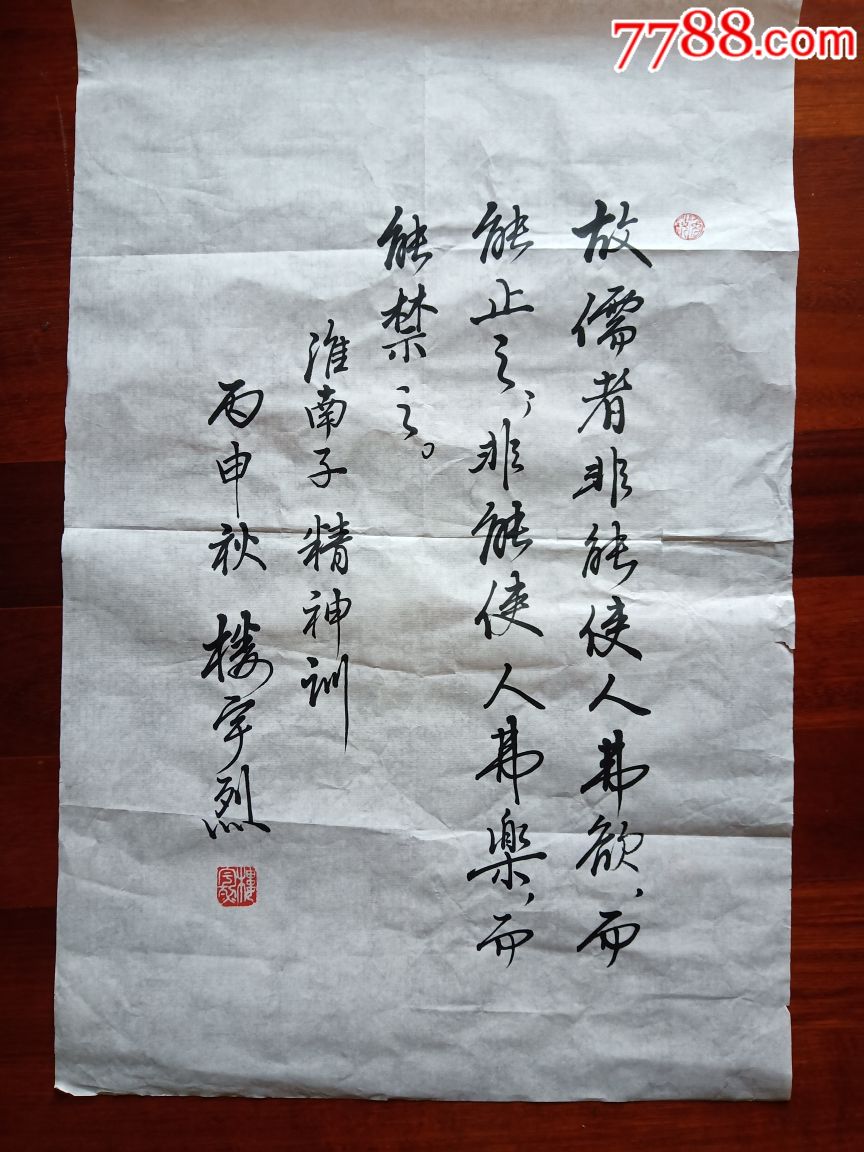 7788.com
故儒者非能使人弗欲，而
能止之，非能使人弗樂，而
能禁之。
淮南子 精神训
丙申秋 楼宇烈